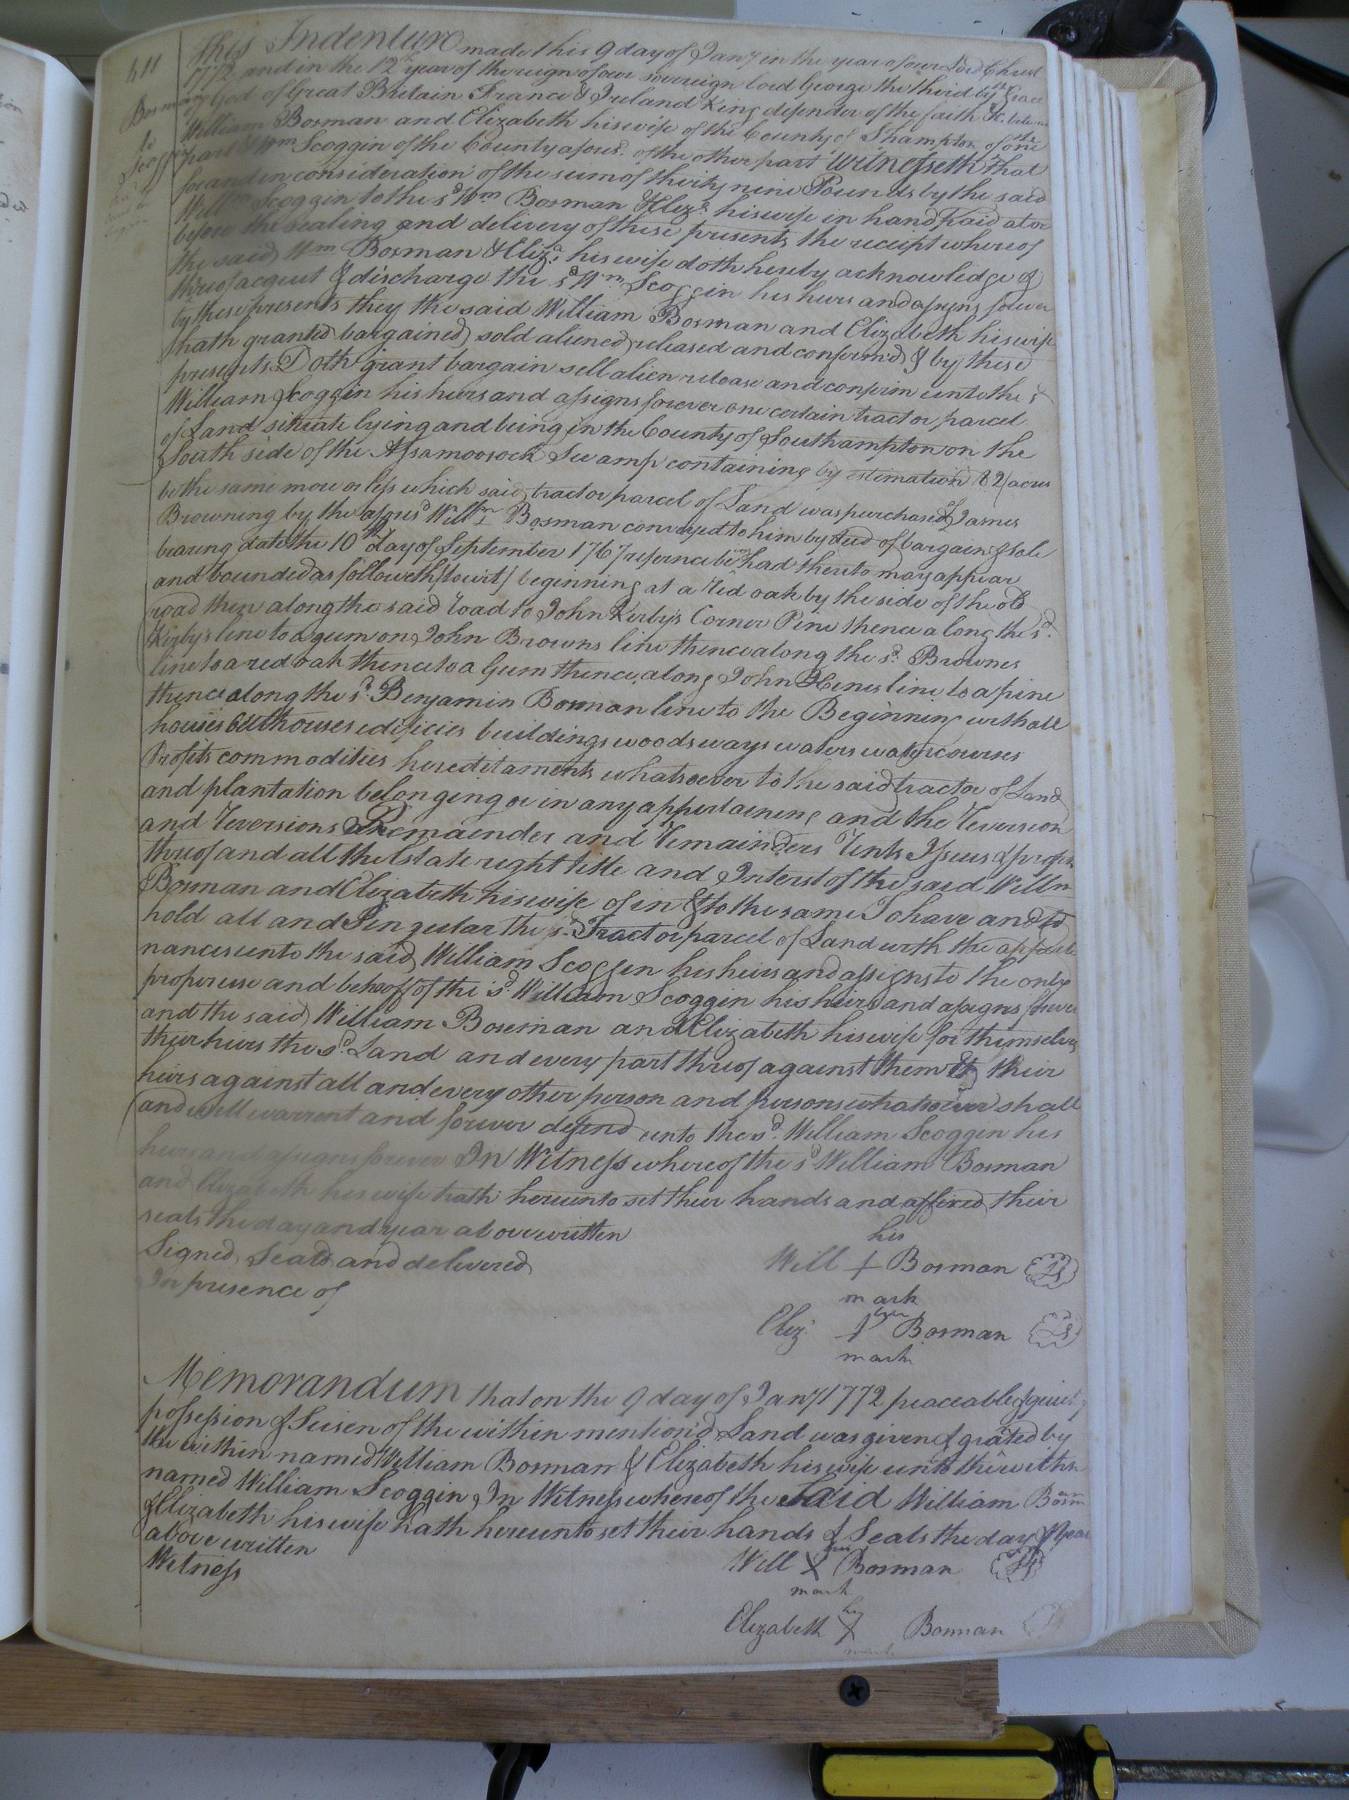 411
Bosman
to
Scoggin
This Indenture made this 9 day of Jany in the year of our Lord Christ
1772 and in the 12th year of the reign of our sovereign lord George the third by the Grace
of God of Great Britain France & Ireland King defender of the faith &c between
William Bosman and Elizabeth his wife of the County of S hampton of one
part & Wm Scoggin of the County afores.d of the other part Witnesseth That
for and in consideration of the sum of thirty nine Pounds by the said
Willm Scoggin to the sd Wm Bosman & Eliza his wife in hand paid at or
before the sealing and delivery of these presents the receipt whereof
the said Wm Bosman & Eliza his wife doth hereby acknowledge &
thereof acquit & discharge the sd Wm Scoggin his heirs and assigns forever
by these presents they the said William Bosman and Elizabeth his wife
hath granted bargained sold aliened released and confirmed & by these
presents Doth grant bargain sell alien release and confirm unto the sd
William Scoggin his heirs and assigns forever one certain tract or parcel
of Land situate lying and being in the County of Southampton on the
South side of the Assamoosock Swamp containing by estimation 82 acres
be the same more or less which said tract or parcel of Land was purchased of James
Browning by the aforesd Willm Bosman conveyed to him by deed of bargain & sale
bearing date the 10th day of September 1767 refernce being had thereto may appear
and bounded as followeth (to wit) beginning at a red oak by the side of the old
road thence along the said road to John Kerby's Corner Pine thence along the sd
Kirby's line to a gum on John Browns line thence along the sd Brownes
line to a red oak thence to a Gum thence along John Hines line to a pine
thence along the sd Benjamin Bosman line to the Beginning with all
houses outhouses edificies buildings woods ways waters watercourses
Profits commodities hereditaments whatsoever to the said tract or of Land
and plantation belonging or in any appertaining and the Reversion
and Reversions Remainder and Remainders Rents Issues & profits
thereof and all the Estate right title and Interest of the said Willm
Bosman and Elizabeth his wife of in & to the same To have and to
hold all and Singular the sd Tract or parcel of Land with the appurte
nances unto the said William Scoggin his heirs and assigns to the only
proper use and behoof of the sd William Scoggin his heirs and assigns forever
and the said William Boseman and Elizabeth his wife for themselves
their heirs the sd Land and every part thereof against them & their
heirs against all and every other person and persons whatsoever shall
and will warrent and forever defend unto the sd William Scoggin his
heirs and assigns forever In Witness whereof the sd William Bosman
and Elizabeth his wife hath hereunto set their hands and affixed their
seals the day and year above written
Signed Seald and delivered
In presence of
his
Will + Bosman LS
mark
her
Eliz + Bosman LS
mark
Memorandum that on the 9 day of Jany 1772 peaceable & quiet
possession & Seisen of the within mention'd Land was given & grated by
the within named William Bosman & Elizabeth his wife unto the within
named William Scoggin In Witness whereof the said William Bosman
& Elizabeth his wife hath hereunto set their hands & Seals the day & year
above written
Witness
his
Will X Bosman LS
mark
her
Elizabeth X Bosman
mark